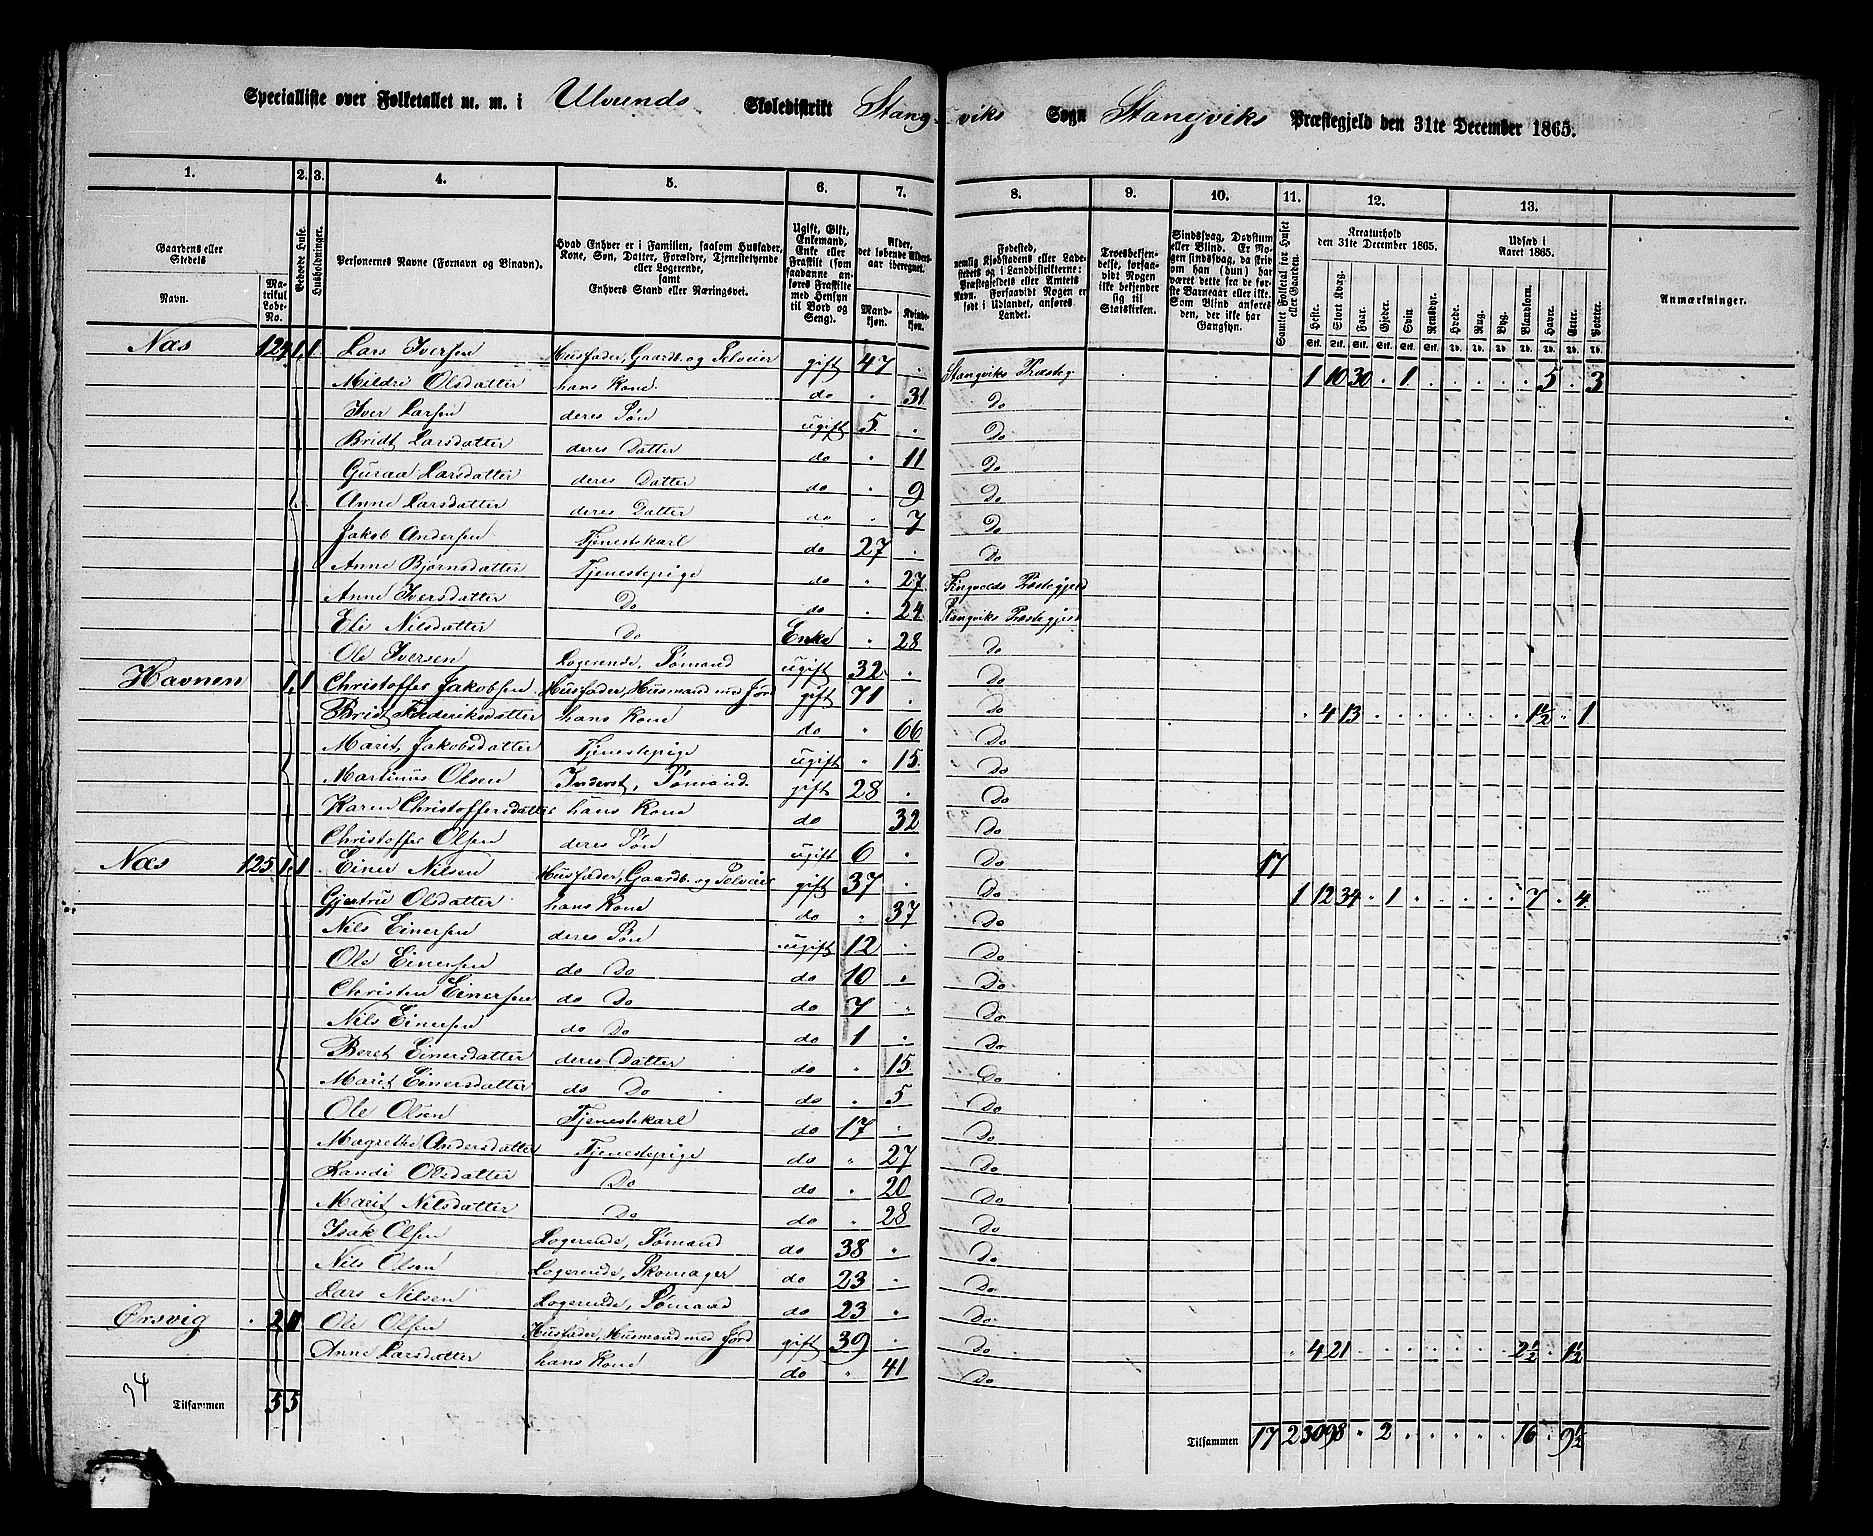 Specialliste over Folketallet m. m. i Ulvunds Skoledistrikt Stangviks Sogn Stangviks Præstegjeld den 31te December 1865.
1. 2. 3. 4. 5. 6. 7. 8. 9. 10. 11. 12. 13.
Gaardens eller Stedets Navn. Matrikul Løbe-No. Beboede Huse. Husholdninger. Personernes Navne (Fornavn og Binavn). Hvad Enhver er i Familien, saasom Husfader, Kone, Søn, Datter, Forældre, Tjenestetyende eller Logerende, samt Enhvers Stand eller Næringsvei. Ugift, Gift, Enkemand, Enke eller Fraskilt (som saadanne anføres Fraskilte med Hensyn til Bord og Seng). Alder, det løbende Aldersaar iberegnet. Mandkjøn. Kvindekjøn. Fødested, nemlig Kjøbstadens eller Ladestedets og i Landdistrikterne: Præstegjeldets eller Amtets Navn. Forsaavidt Nogen er født i Udlandet, anføres Landet. Troesbekjendelse, forsaavidt Nogen ikke bekjender sig til Statskirken. Sindssvag, Døvstum eller Blind. Er Nogen sindssvag, da skriv om han (hun) har været dette fra første Barneaar eller ikke. Som Blind anføres den, der ikke har Gangsyn. Samlet Folketal for Huset eller Gaarden. Kreaturhold den 31te December 1865. Heste. Stort Kvæg. Faar. Gjeder. Svin. Rensdyr. Udsæd i Aaret 1865. Hvede. Rug. Byg. Blandkorn. Havre. Erter. Poteter. Anmærkninger.
Næs 124 1 1 Lars Iversen Husfader, Gaardb. og Selveier gift 47 . Stangviks Præsteg 1 10 30 . 1 . . . . . 5 . 3
Mildri Olsdatter hans Kone do " 31 Do
Iver Larsen deres Søn ugift 5 . Do
Bridt Larsdatter deres Datter do " 11 Do
Guraa Larsdatter deres Datter do " 9 Do
Anne Larsdatter deres Datter do " 7 Do
Jakob Andersen Tjenestekarl do 27 . Do
Anne Bjørnsdatter Tjenestepige do " 27 Tingvolds Præstegjeld
Anne Iversdatter Do do . 24 Stangviks Præstegjeld
Eli Nilsdatter Do Enke " 28 Do
Ole Iversen Logerende, Sømand ugift 32 . Do
Havnen 1 1 Christoffer Jakobsen Husfader, Husmand med Jord gift 71 . Do " 4 13 . . . . . . . 1½ " 1
Bridt Frederiksdatter hans Kone do " 66 Do
Marit Jakobsdatter Tjenestepige ugift " 15 Do
Martinus Olsen Inderst, Sømand gift 28 . Do
Karen Christoffersdatter hans Kone do 32 Do
Christoffer Olsen deres Søn ugift 6 . Do 17
Næs 125 1 1 Einer Nilsen Husfader, Gaardb. og Selveier gift 37 . Do 1 12 34 " 1 . . . . . 7 . 4
Gjertru Olsdatter hans Kone do " 37 Do
Nils Einersen deres Søn ugift 12 . Do
Ole Einersen do Do do 10 " Do
Christen Einersen do Do do 7 " Do
Nils Einersen do Do do 1 . Do
Beret Einersdatter deres Datter do " 15 Do
Marit Einersdatter do Do do " 5 Do
Ole Olsen Tjenestekarl do 17 . Do
Magrethe Andersdatter Tjenestepige do " 27 Do
Randi Olsdatter Do do " 20 Do
Marit Nilsdatter Do do " 28 Do
Isak Olsen Logerende, Sømand do 38 " Do
Nils Olsen Logerende, Skomager do 23 . Do
Lars Nilsen Logerende, Sømand do 23 " Do
Ørsvig . 2 Ole Olsen Husfader, Husmand med Jord gift 39 . Do " 4 21 . . . . . . . 2½ . 1½
Anne Larsdatter hans Kone do " 41 Do
34 Tilsammen 5 5 Tilsammen 17 2 30 98 " 2 . . . . . 16 . 9½